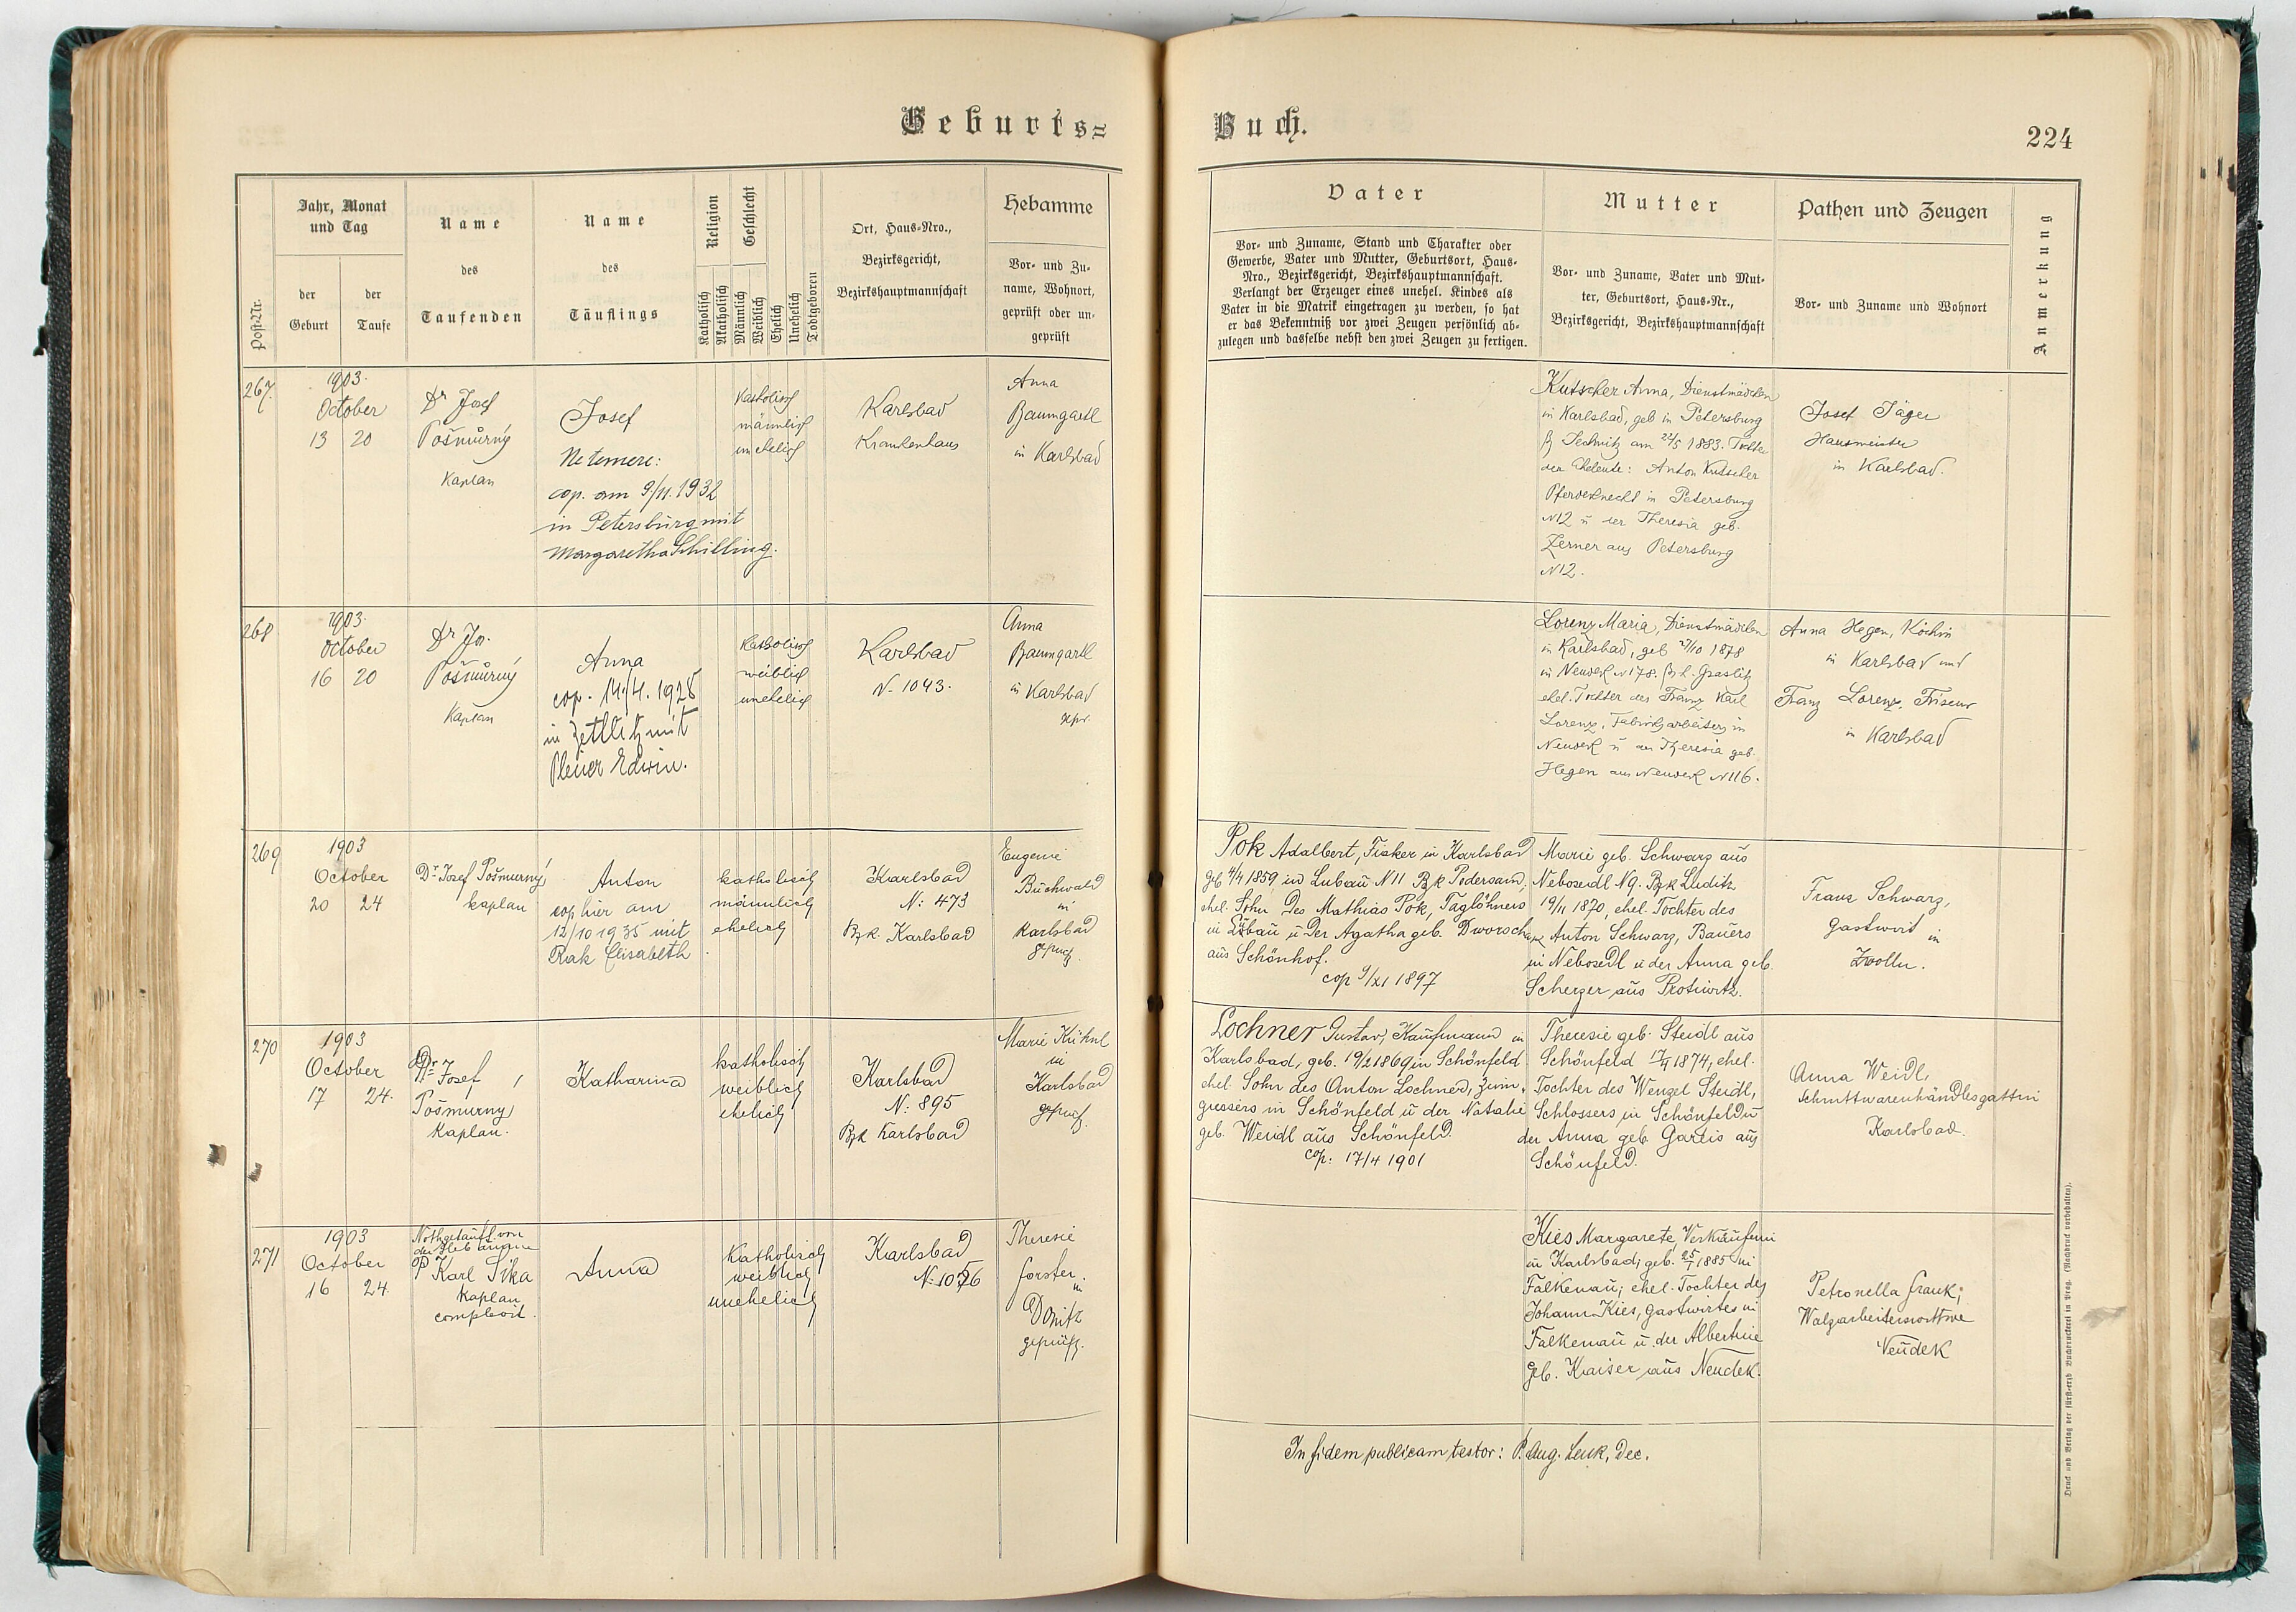 Geburts=
Buch.
224
Post-Nr.
Jahr, Monat
und Tag
der
Geburt
der
Taufe
Name
des
Taufenden
Name
des
Täuflings
Religion
Katholisch
Akatholisch
Geschlecht
Männlich
Weiblich
Ehelich
Unehelich
Todtgeboren
Ort, Haus-Nro.,
Bezirksgericht,
Bezirkshauptmannschaft
Hebamme
Vor- und Zu-
name, Wohnort,
geprüft oder un-
geprüft
Vater
Vor- und Zuname, Stand und Charakter oder
Gewerbe, Vater und Mutter, Geburtsort, Haus-
Nro., Bezirksgericht, Bezirkshauptmannschaft.
Verlangt der Erzeuger eines unehel. Kindes als
Vater in die Matrik eingetragen zu werden, so hat
er das Bekenntniß vor zwei Zeugen persönlich ab-
zulegen und dasselbe nebst den zwei Zeugen zu fertigen.
Mutter
Vor- und Zuname, Vater und Mut-
ter, Geburtsort, Haus-Nr.,
Bezirksgericht, Bezirkshauptmannschaft
Pathen und Zeugen
Vor- und Zuname und Wohnort
Anmerkung
267.
1903.
October
13 20
Dr Josef
Pošmůrný
Kaplan
Josef
Ne temere:
cop. am 9/11. 1932
in Petersburg mit
Margaretha Schilling.
Katholisch
männlich
unehelich
Karlsbad
Krankenhaus
Anna
Baumgartl
in Karlsbad
Kutscher Anna, Dienstmädchen
in Karlsbad, geb in Petersburg
Bz Jechnitz am 22/5 1883. Tochter
der Eheleute: Anton Kutscher
Pferdeknecht in Petersburg
N12 u der Theresia geb.
Zerner aus Petersburg
N12.
Josef Jäger
Hausmeister
in Karlsbad.
268
1903.
October
16 20
Dr Jos.
Pošmůrný
Kaplan
Anna
cop. 14./4. 1928
in Zettlitz mit
Pleier Edwin.
Katholisch
weiblich
unehelich
Karlsbad
N. 1043.
Anna
Baumgartl
in Karlsbad
gpr.
Lorenz Maria, Dienstmädchen
in Karlsbad, geb 27/10 1878
in Neudek N178. Bz h. Graslitz
ehel. Tochter des Franz Karl
Lorenz, Fabriksarbeiters in
Neudek u der Theresia geb.
Hegen aus Neudek N116.
Anna Hegen, Köchin
in Karlsbad und
Franz Lorenz, Friseur
in Karlsbad
269
1903
October
20 24
Dr. Josef Pošmurný
kaplan
Anton
cop hier am
12/10 1935 mit
Rak Elisabeth
katholisch
männlich
ehelich
Karlsbad
N: 473
Bzk. Karlsbad
Eugenie
Buchwald
in
Karlsbad
geprüf.
Pok Adalbert, Fiaker in Karlsbad
geb 4/4 1859 in Lubau N11 Bzk Podersam,
ehel. Sohn des Mathias Pok, Taglöhners
in Lubau u der Agatha geb. Dworschak
aus Schönhof.
cop 9/XI 1897
Marie geb. Schwarz aus
Nebosedl N9. Bzk Luditz
19/11 1870, ehel. Tochter des
Anton Schwarz, Bauers
in Nebosedl u der Anna geb.
Scherzer aus Protiwitz.
Franz Schwarz,
Gastwirt in
Zwolln.
270
1903
October
17 24.
Dr. Josef
Pošmurny
Kaplan.
Katharina
katholisch
weiblich
ehelich
Karlsbad
N: 895
Bzk Karlsbad
Marie Kühnl
in
Karlsbad
geprüf.
Lochner Gustav, Kaufmann in
Karlsbad, geb. 19/2 1869 in Schönfeld
ehel. Sohn des Anton Lochner, Zinn-
giessers in Schönfeld u der Natalie
geb. Weidl aus Schönfeld.
cop: 17/4 1901
Theresie geb. Steidl aus
Schönfeld 17/4 1874, ehel.
Tochter des Wenzel Steidl,
Schlossers in Schönfeld u
der Anna geb Garlis aus
Schönfeld.
Anna Weidl,
Schnittwarenhändlersgattin
Karlsbad.
271
1903
October
16 24.
Nothgetauft von
der Hebamme
P Karl Sika
Kaplan
complevit.
Anna
Katholisch
weiblich
unehelich
Karlsbad
N: 1056
Theresie
Forster
in
Donitz
geprüft.
Kies Margarete, Verkäuferin
in Karlsbad, geb. 25/1 1885 in
Falkenau; ehel. Tochter des
Johann Kies, Gastwirtes in
Falkenau u. der Albertine
geb. Kaiser aus Neudek.
Petronella Frank;
Walzarbeiterswittwe
Neudek
In fidem publicam testor: P. Aug. Lenk, Dec.
Druck und Verlag der fürst-erzb Buchdruckerei in Prag. (Nachdruck vorbehalten).